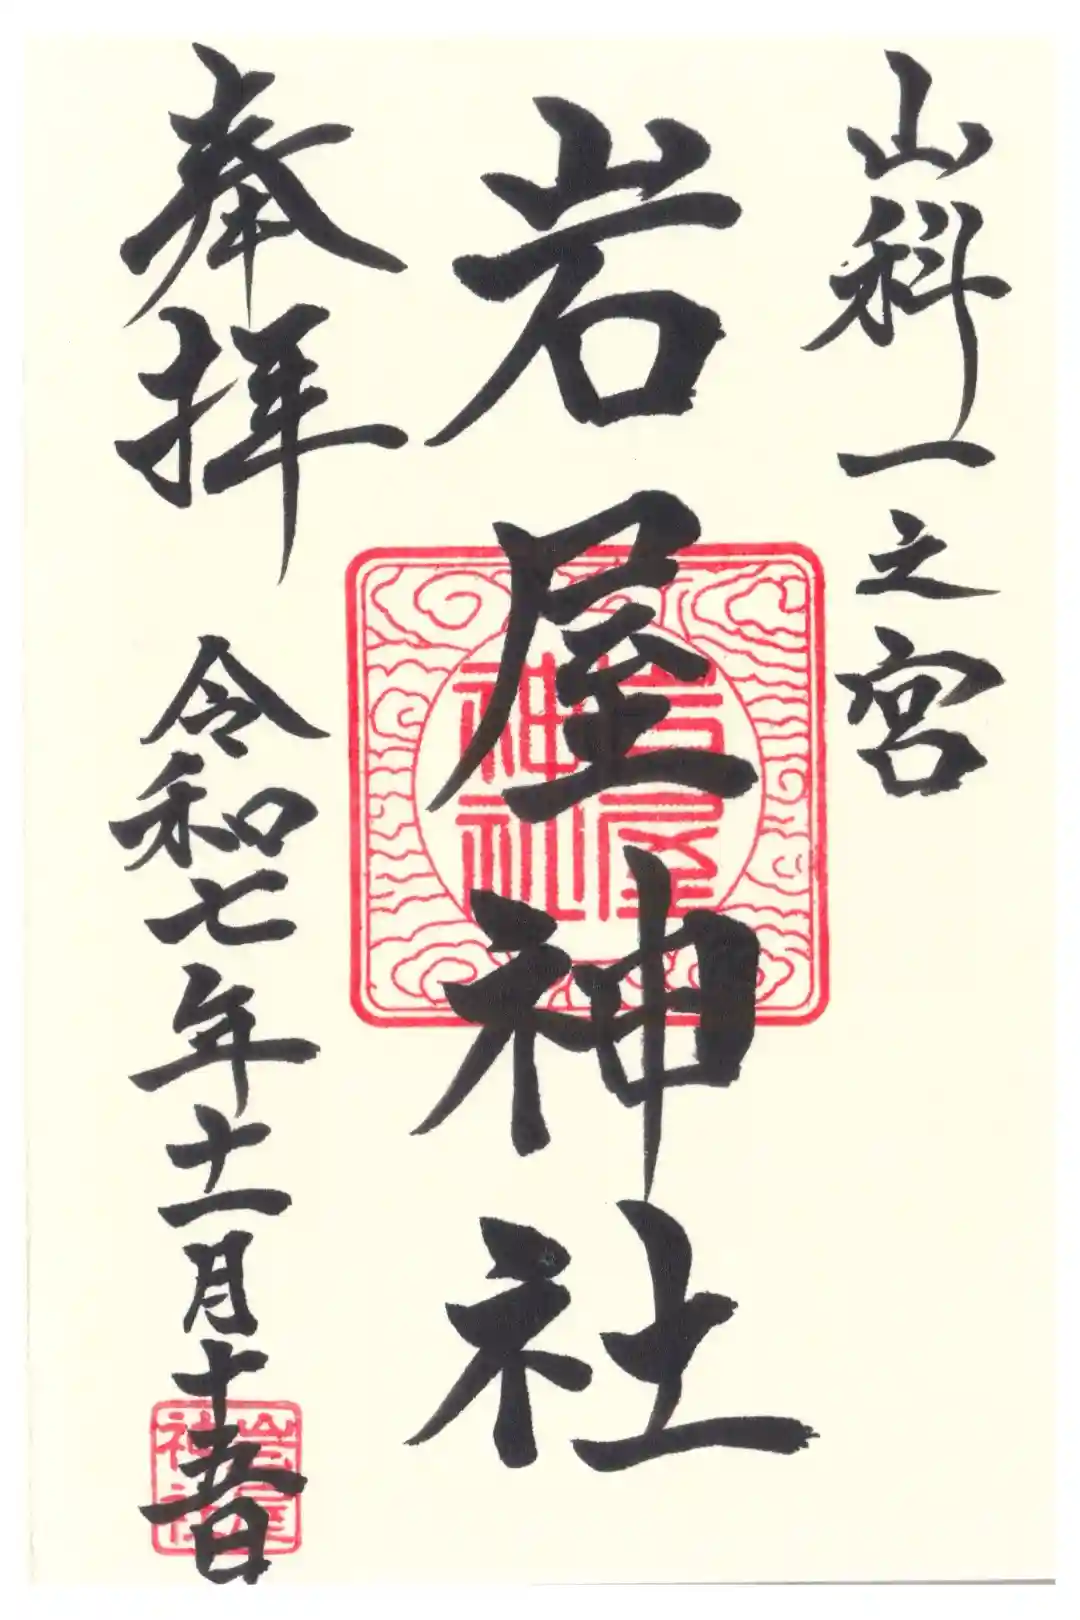 山科一之宮
岩屋神社
奉拝
令和七年十一月十五日
岩屋
神社
岩屋
神社